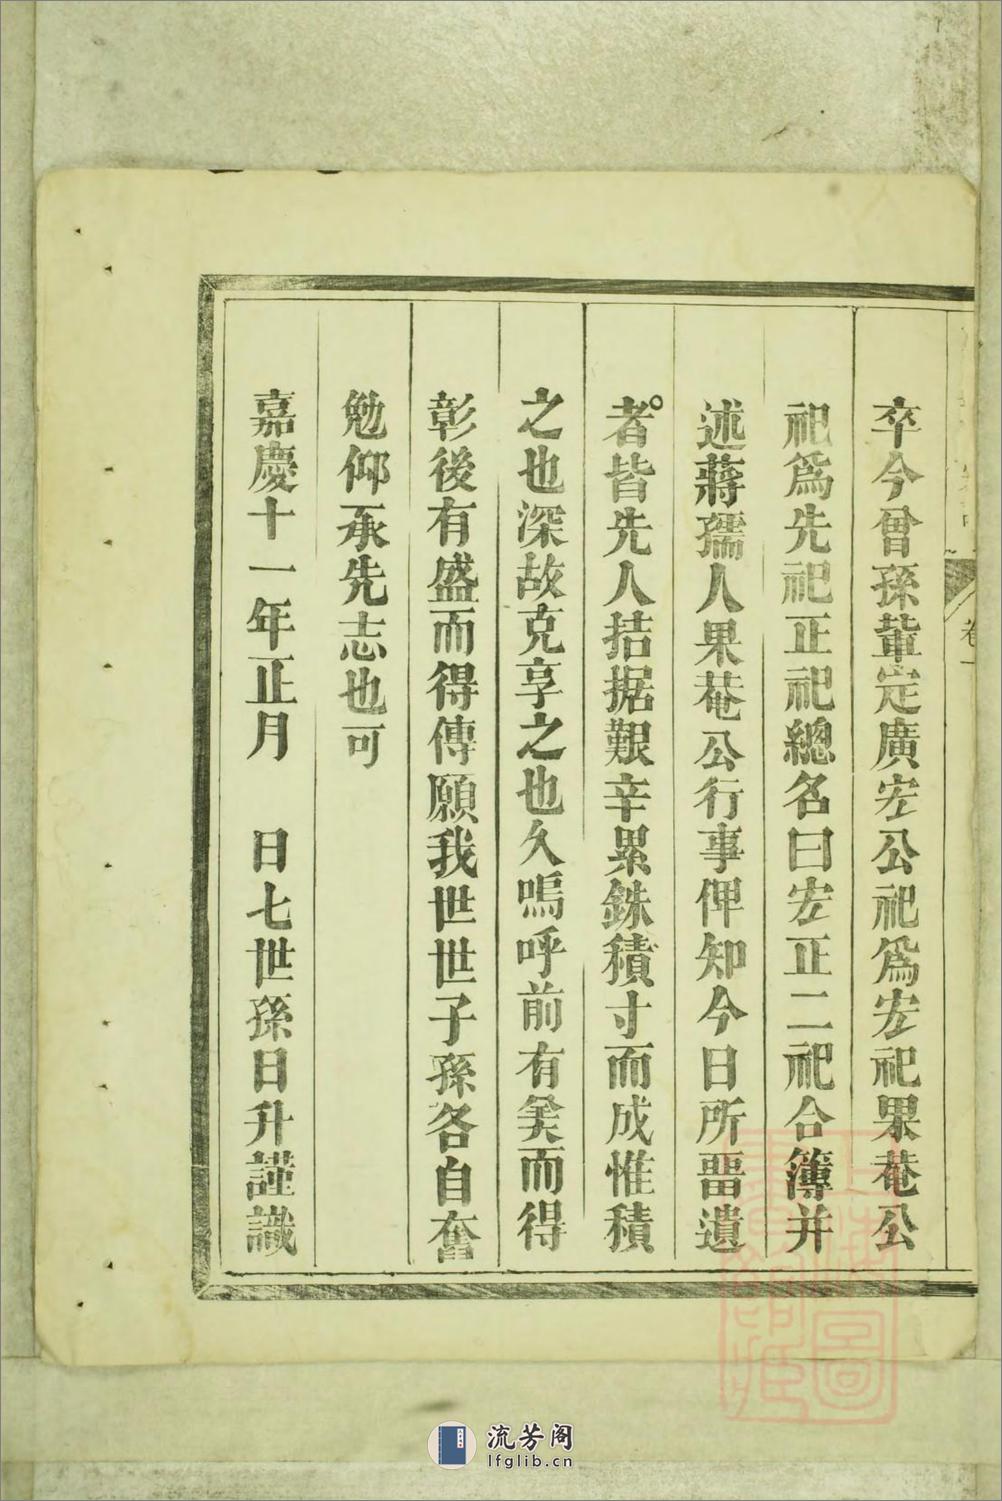 卒今曾孫輩定廣宏公祀爲宏祀果菴公
祀爲先祀正祀總名曰宏正二祀合簿并
述蔣孺人果菴公行事俾知今日所畱遺
者皆先人拮据艱辛累銖積寸而成惟積
之也深故克享之也久嗚呼前有美而得
彰後有盛而得傳願我世世子孫各自奮
勉仰承先志也可
嘉慶十一年正月 日七世孫日升謹識
卷一
上海圖書館藏
流芳阁
lfglib.cn